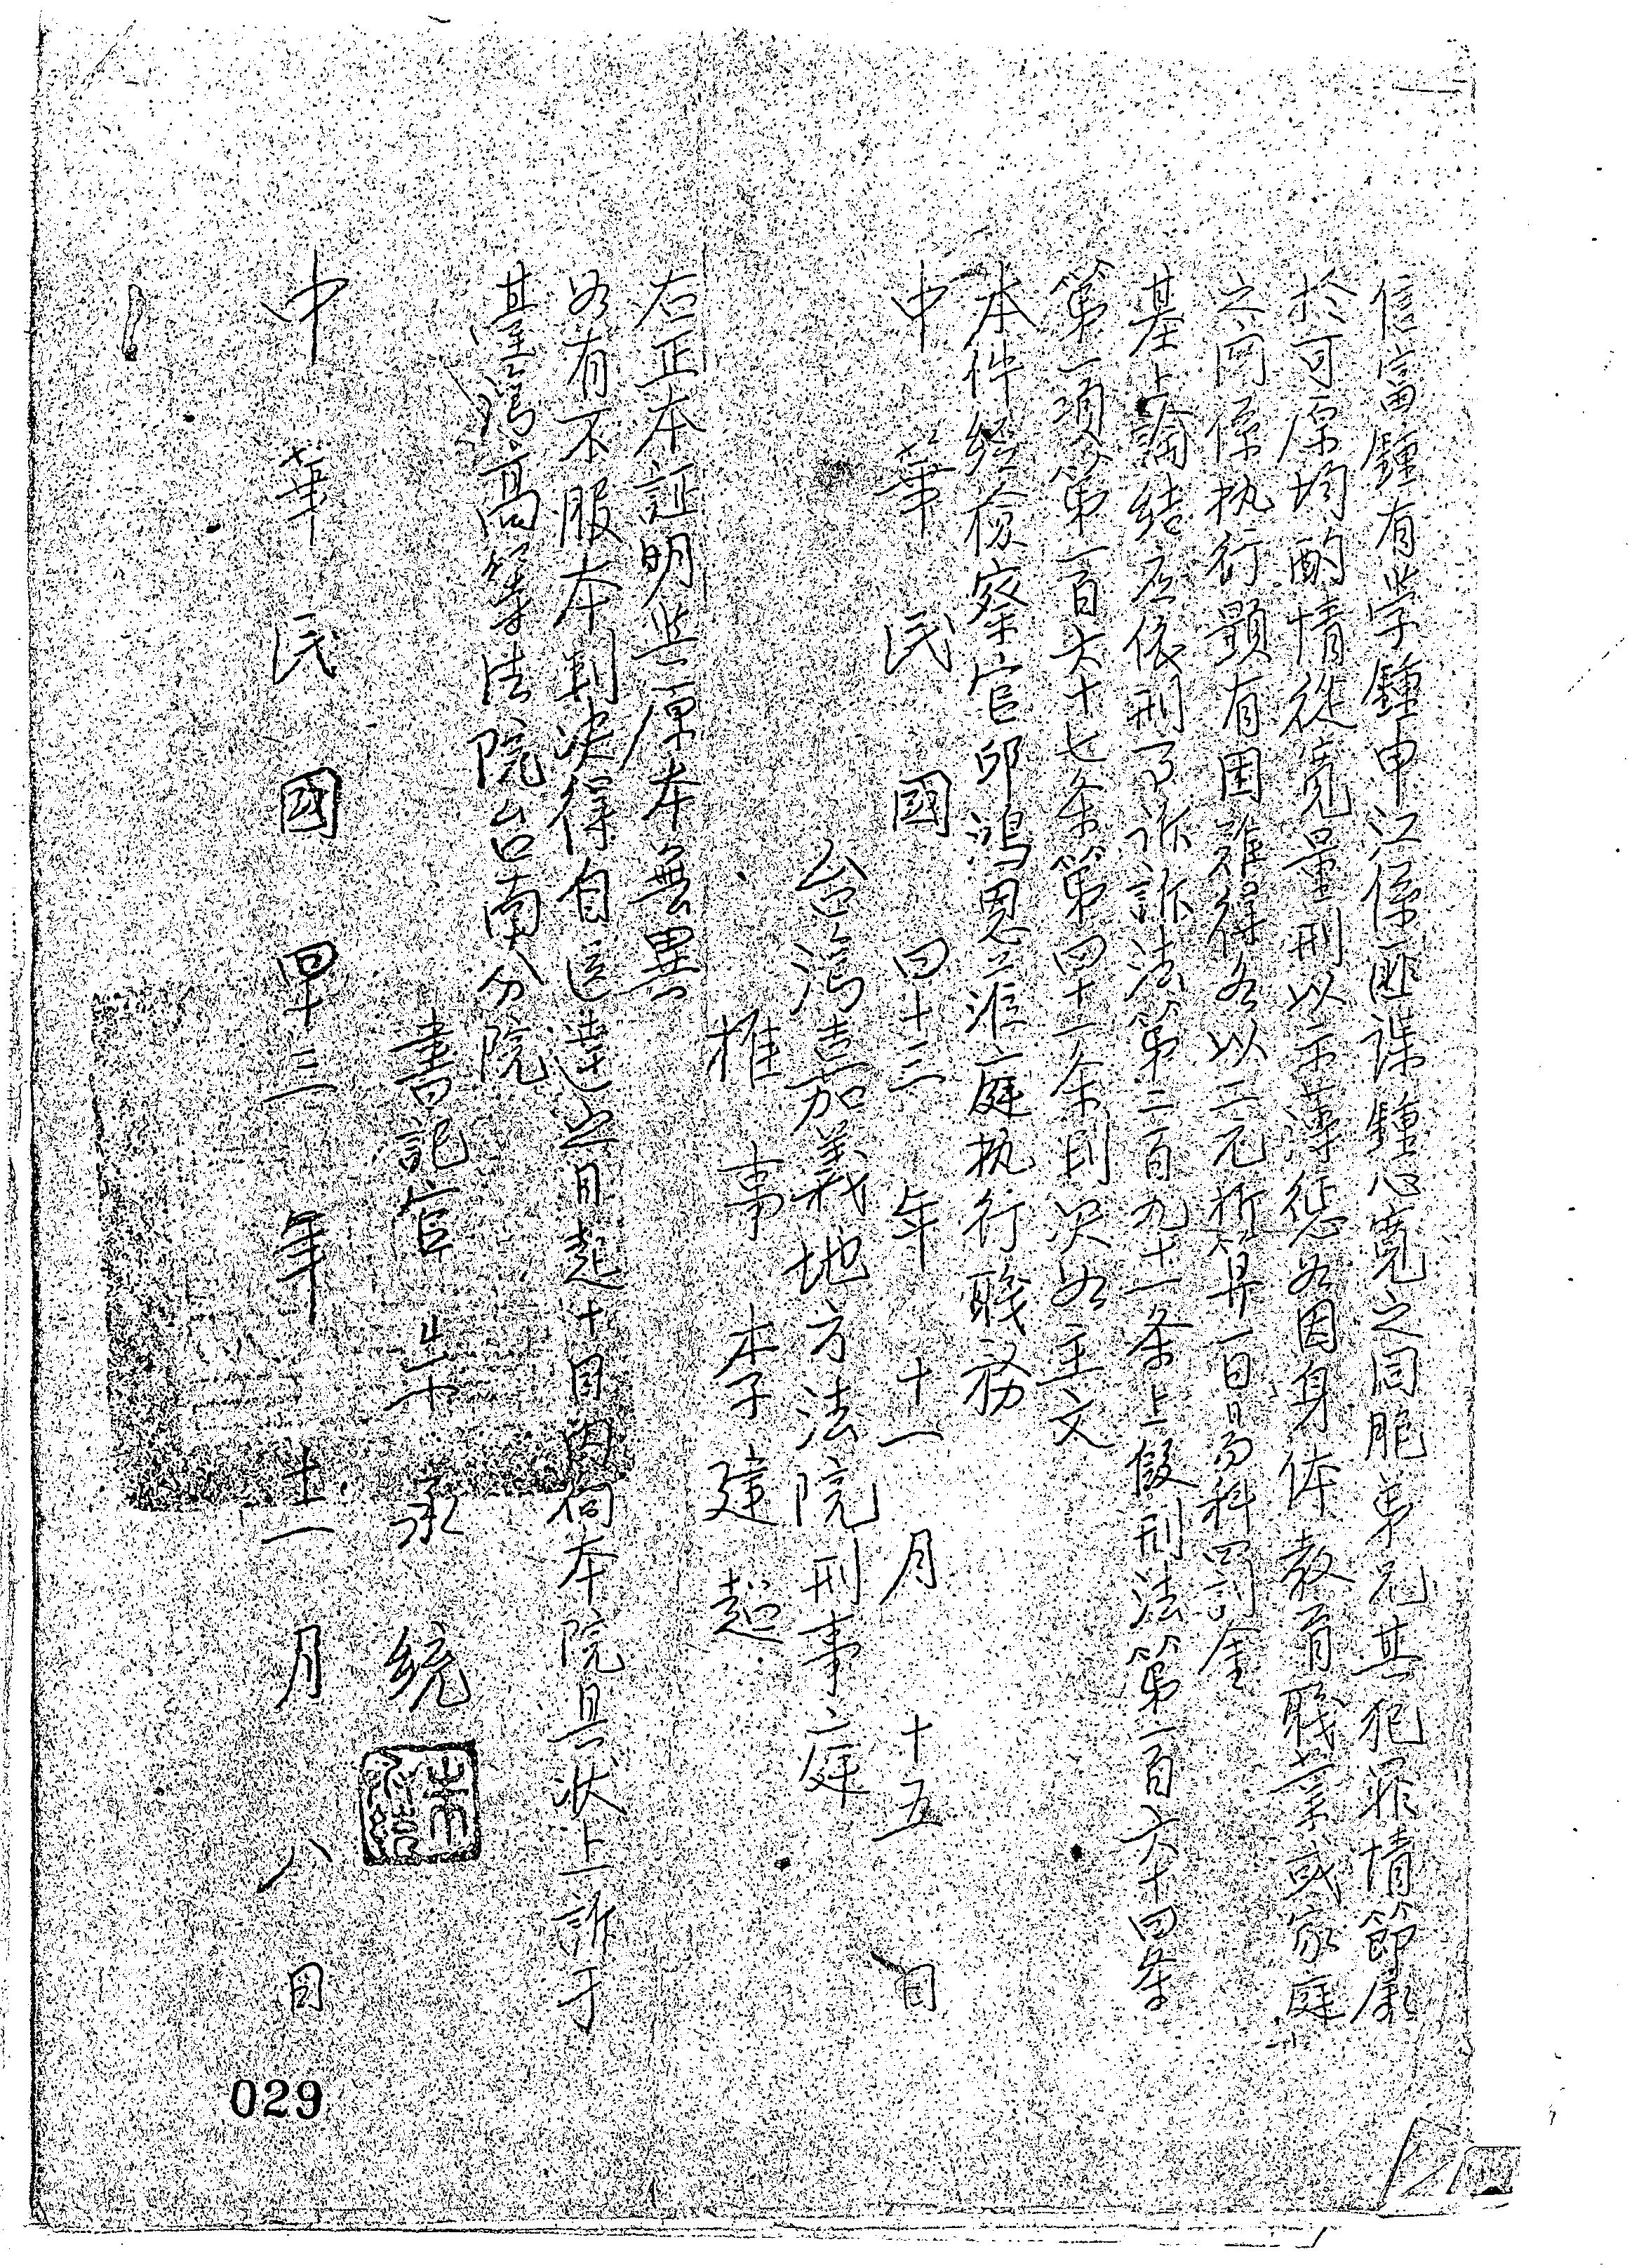 信富鍾有学鍾申江係匪諜鍾心寬之同胞弟兄其犯罪情節屬
於可原均酌情從寬量刑以示薄懲如因身体教育職業或家庭
之関係执行顕有困難得各以二元折算一日易科罰金
基上論結应依刑事訴訟法第二百九十一条上段刑法第一百六十四条
第一項第一百六十七条第四十一条判决如主文
本件経檢察官邱鴻恩涖庭执行職務
中華民國四十三年十一月十五日
台湾嘉義地方法院刑事庭
推事李建超
右正本証明与原本無異
如有不服本判决得自送達之日起十日內向本院具狀上訴于
臺湾高等法院台南分院
書記官 承統
中華民國四十三年十一月八日
029